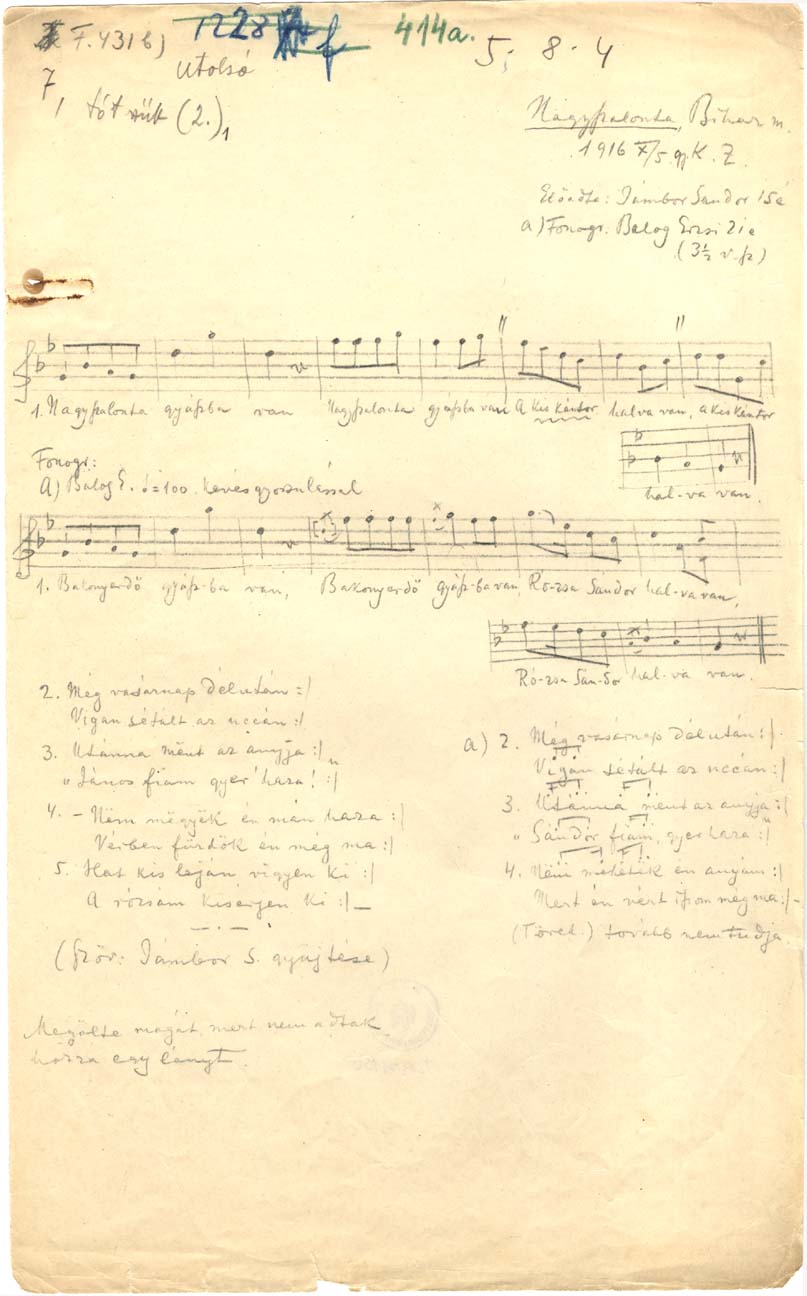 F. 431 b)
1228
f
414a.
5; 8 - 4
utolsó
7,
1 tót (2.)1
Nagyszalonta, Bihar m.
1916 X/5. gy. K. Z.
Előadta: Jámbor Sándor 15é
a) Fonogr. Balog Erzsi 21é
(3½ v. sz)
1. Nagyszalonta gyászba van Nagyszalonta gyászba van A kis kántor halva van, a kis kántor
hal-va van.
Fonogr:
A) Balog E. =100. kevés gyorsulással
1. Bakonyerdő gyász-ba van, Bakonyerdő gyász-ba van, Ró-zsa Sándor hal-va van,
Ró-zsa Sán-do hal-va van.
2. Még vasárnap délután :/
Vigan sétált az uccán :/
3. Utánna mënt az anyja :/
„János fiam gyer' haza! :/"
4. - Nëm mëgyëk én mán haza :/
Vérben fürdök én még ma :/
5. Hat kis leján vigyen ki :/
A rózsám kisérjen ki :/ —
(Szöv: Jámbor S. gyűjtése)
Megölte magát, mert nem adtak
hozzá egy lányt.
a) 2. Még vasárnap délután :/
Vigan sétált az uccán :/
3. Utánna ment az anyja :/
„Sándor fiam, gyer haza :/"
4. Nëm én anyám :/
Mert én vért iszom még ma :/ -
(Töred.) tovább nem tudja